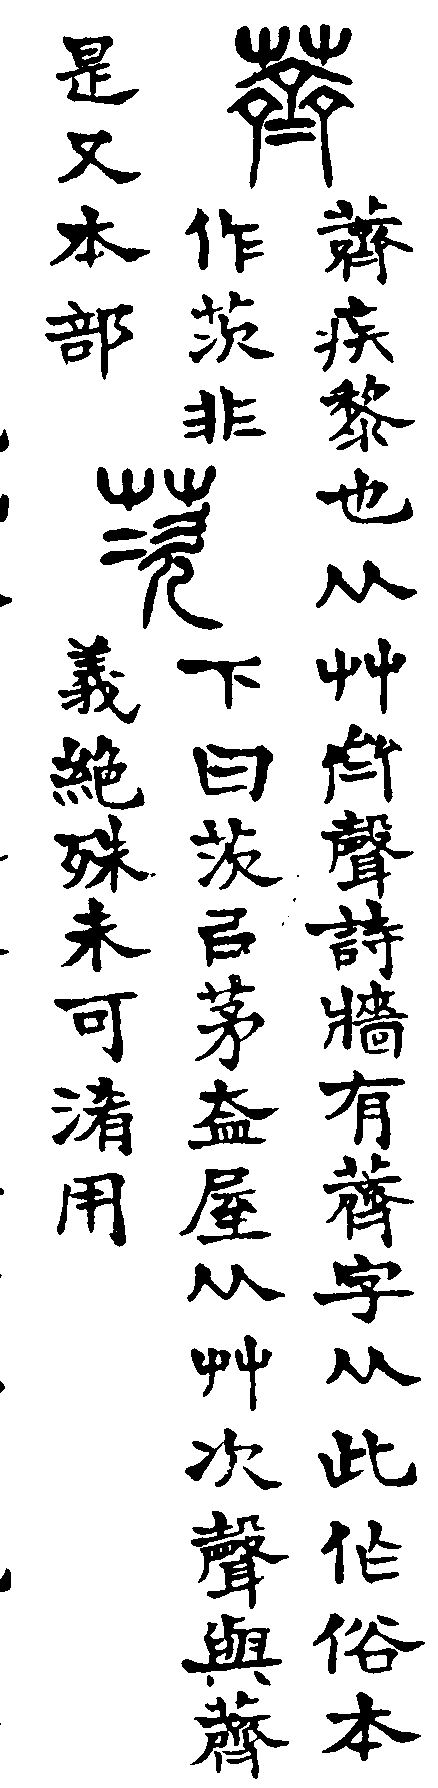 薺
薺疾黎也从艸齊聲詩牆有薺字从此作俗本
作茨非
是又本部
茨
下曰茨㠯茅盇屋从艸次聲與薺
義絕殊未可淆用